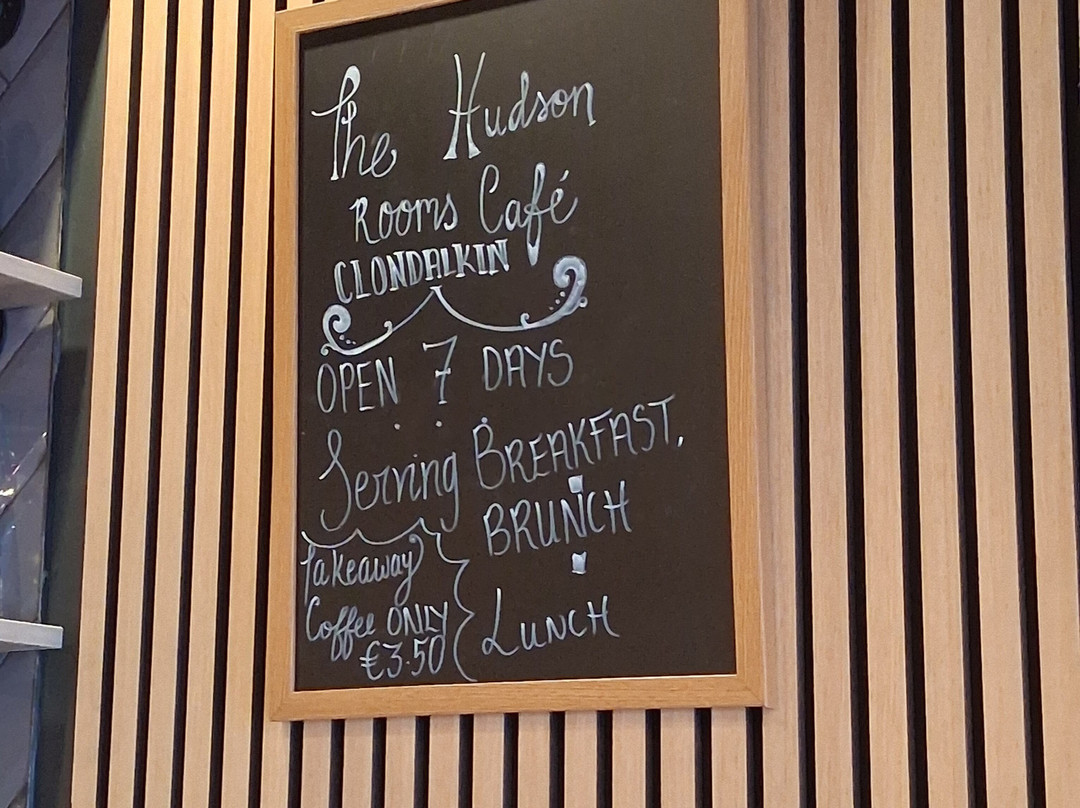 The Hudson
Rooms Café
CLONDALKIN
OPEN 7 DAYS
Serving BREAKFAST,
BRUNCH
LUNCH
Takeaway
Coffee ONLY
€3.50